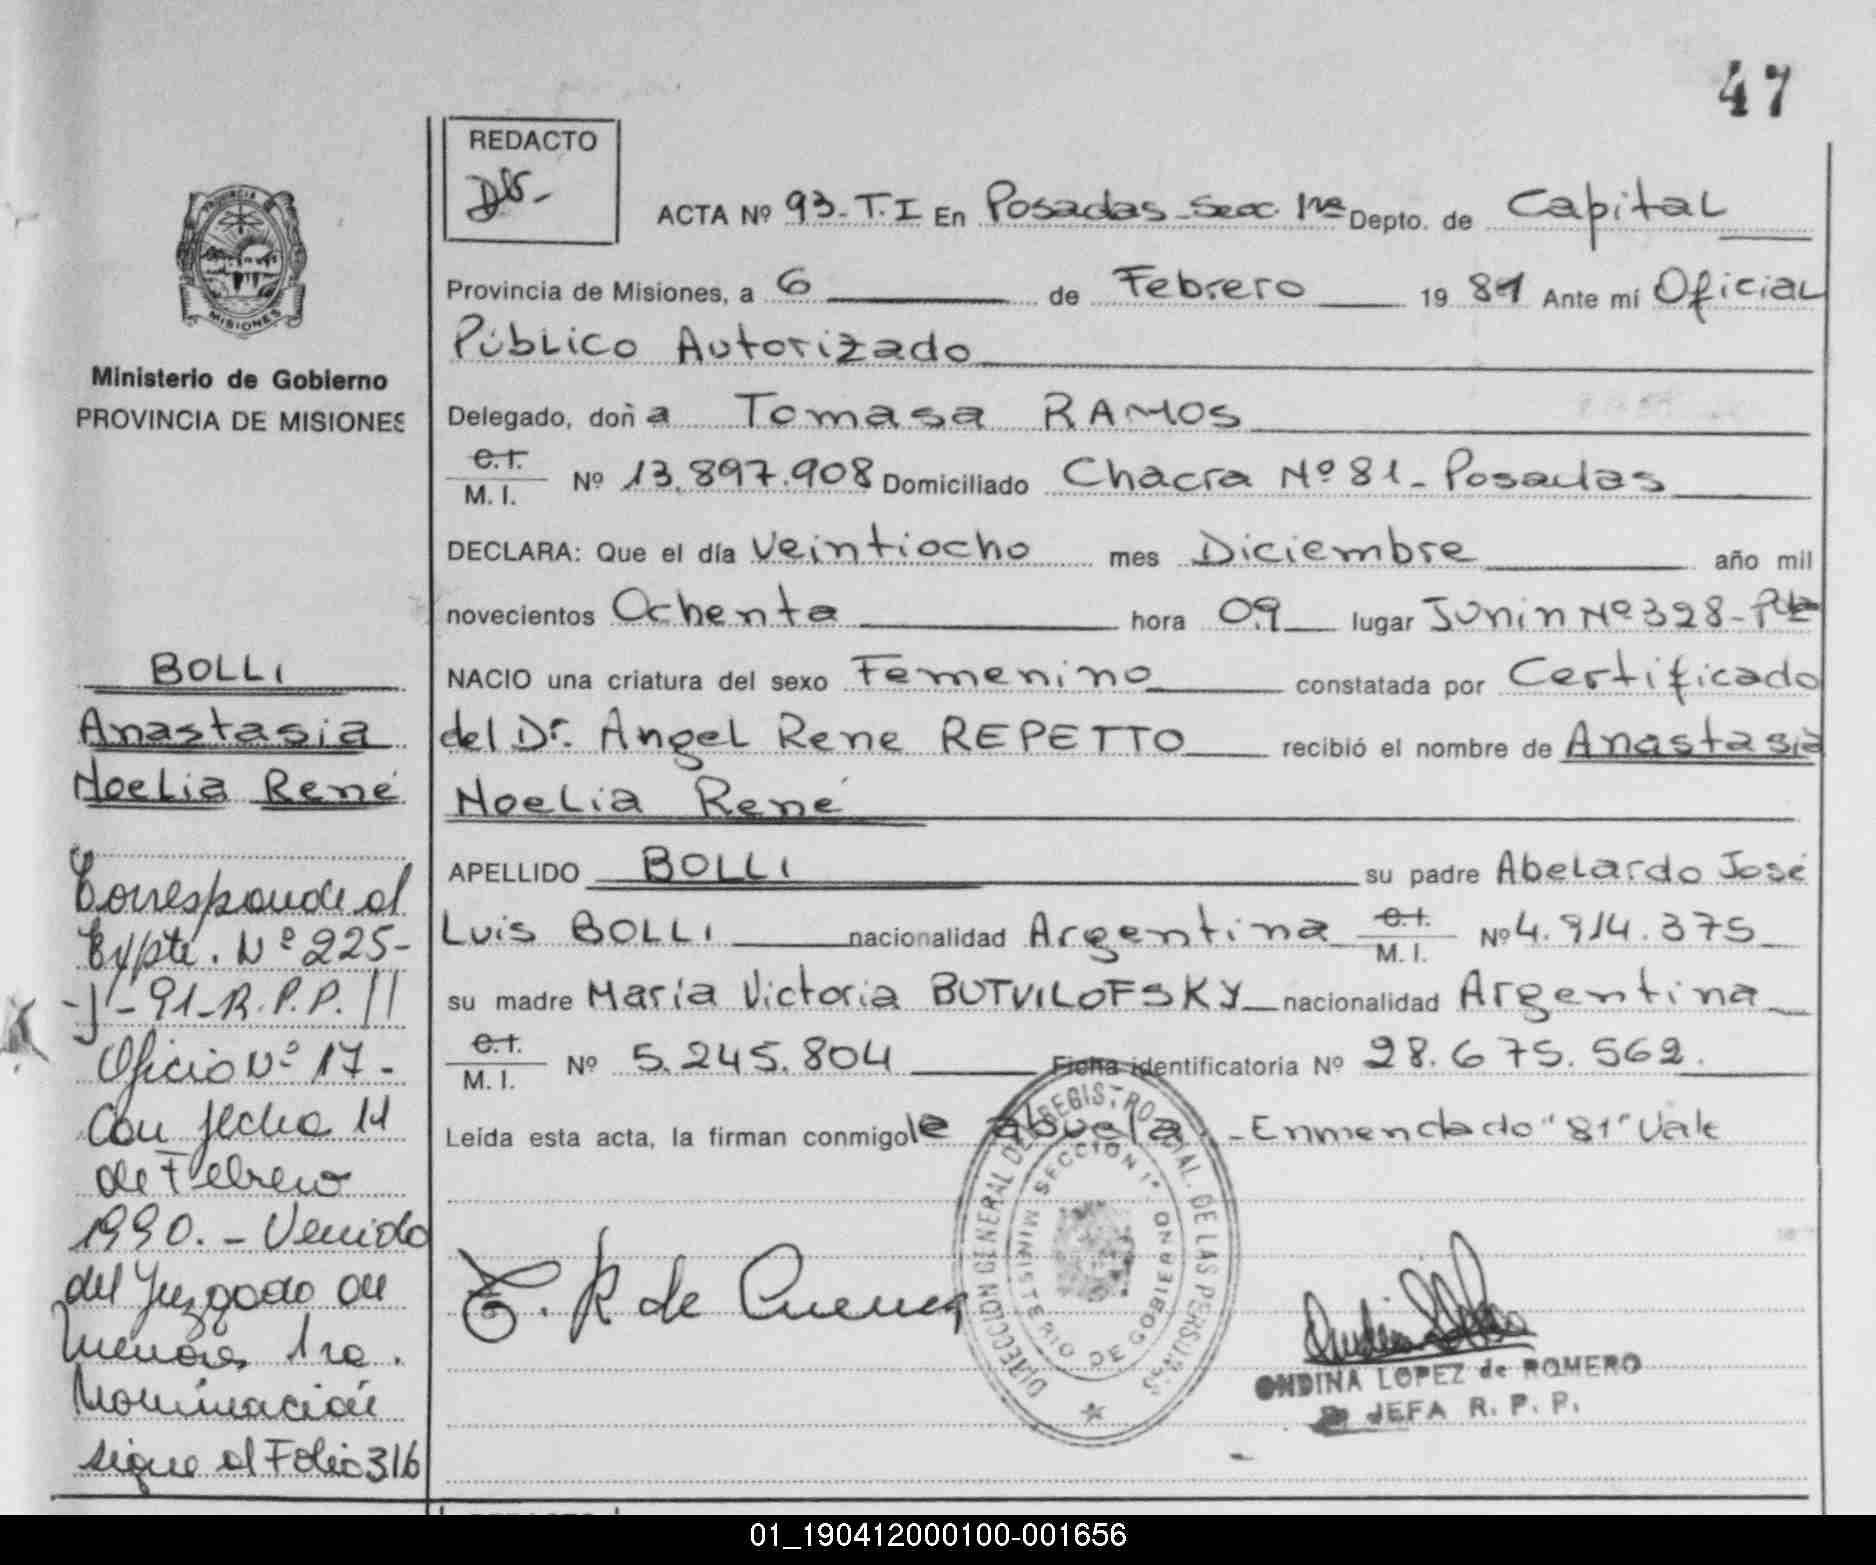 47
REDACTO
ACTA Nº 93-T.I En Posadas-Secc. 1ra Depto. de Capital
PROVINCIA
MISIONES
Provincia de Misiones, a 6 de Febrero 1981 Ante mí Oficial
Público Autorizado
Ministerio de Gobierno
PROVINCIA DE MISIONES
Delegado, doña Tomasa RAMOS
C.I.
M. I. Nº 13.897.908 Domiciliado Chacra Nº 81-Posadas
DECLARA: Que el día Veintiocho mes Diciembre año mil
novecientos Ochenta hora 09 lugar Junin Nº 328-
NACIO una criatura del sexo Femenino constatada por Certificado
del Dr. Angel Rene REPETTO recibió el nombre de Anastasia
Noelia René
APELLIDO BOLLI su padre Abelardo José
Luis BOLLI nacionalidad Argentina C.I.
M. I. Nº 4.914.375
su madre María Victoria BUTVILOFSKY nacionalidad Argentina
C.I.
M. I. Nº 5.245.804 Ficha identificatoria Nº 28.675.562.
Leída esta acta, la firman conmigo la abuela.-Enmendado "81" Vale
BOLLI
Anastasia
Noelia René
Corresponde al
Expte. Nº 225-
-J-91-R.P.P.//
Oficio Nº 17-
Con fecha 11
de Febrero
1990.- Venido
del Juzgado de
Menores 1ra.
Nominación
sigue al Folio 316
T. R de Cuenca
DIRECCION GENERAL DEL REGISTRO PROVINCIAL DE LAS PERSONAS
SECCION 1ª
MINISTERIO DE GOBIERNO
ONDINA LOPEZ de ROMERO
JEFA R. P. P.
01_190412000100-001656